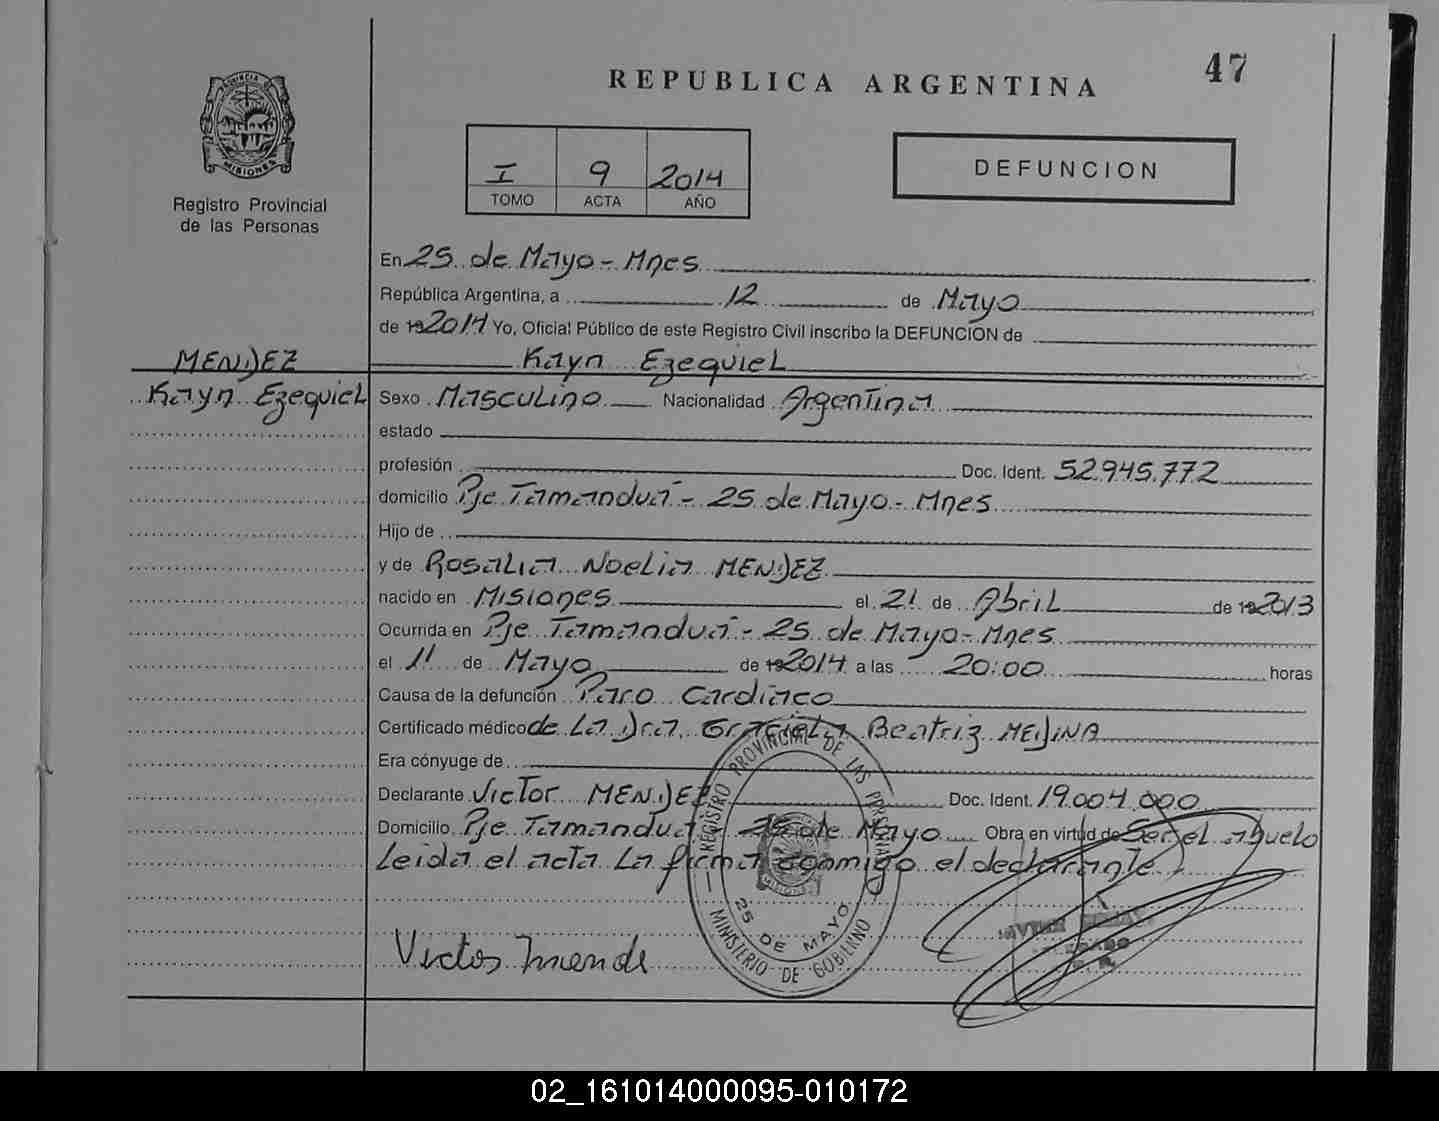 47
REPUBLICA ARGENTINA
PROVINCIA DE
MISIONES
Registro Provincial
de las Personas
I 9 2014
TOMO ACTA AÑO
DEFUNCION
En 25 de Mayo - Mnes
República Argentina, a 12 de Mayo
de 19 2014 Yo, Oficial Público de este Registro Civil inscribo la DEFUNCION de
MENDEZ Kayn Ezequiel
Kayn Ezequiel Sexo Masculino Nacionalidad Argentina
estado
profesión Doc. Ident. 52.945.772
domicilio Pje Tamanduá - 25 de Mayo - Mnes
Hijo de
y de Rosalia Noelia MENDEZ
nacido en Misiones el 21 de Abril de 19 2013
Ocurrida en Pje Tamanduá - 25 de Mayo - Mnes
el 11 de Mayo de 19 2014 a las 20:00 horas
Causa de la defunción Paro Cardiaco
Certificado médico de La Dra. Graciela Beatriz MEDINA
Era cónyuge de
Declarante Victor MENDEZ Doc. Ident. 19.004.000
Domicilio Pje Tamanduá - 25 de Mayo Obra en virtud de Ser el abuelo
Leida el acta La firma conmigo el declarante
REGISTRO PROVINCIAL DE LAS PERSONAS
25 DE MAYO
MINISTERIO DE GOBIERNO
Victos Mende
02_161014000095-010172